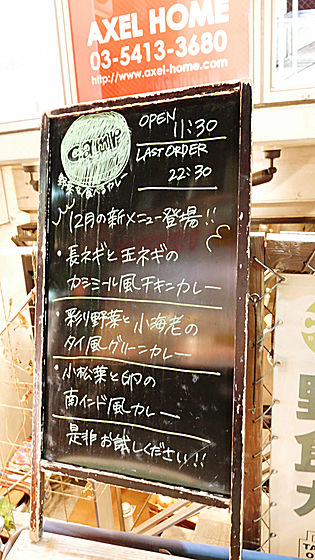 AXEL HOME
03-5413-3680
http://www.axel-home.com
camp
野菜を食べるカレー
OPEN 11:30
LAST ORDER
22:30
12月の新メニュー登場!!
・長ネギと玉ネギの
カシミール風チキンカレー
・彩り野菜と小海老の
タイ風グリーンカレー
・小松菜と卵の
南インド風カレー
是非お試しください!!
野
食